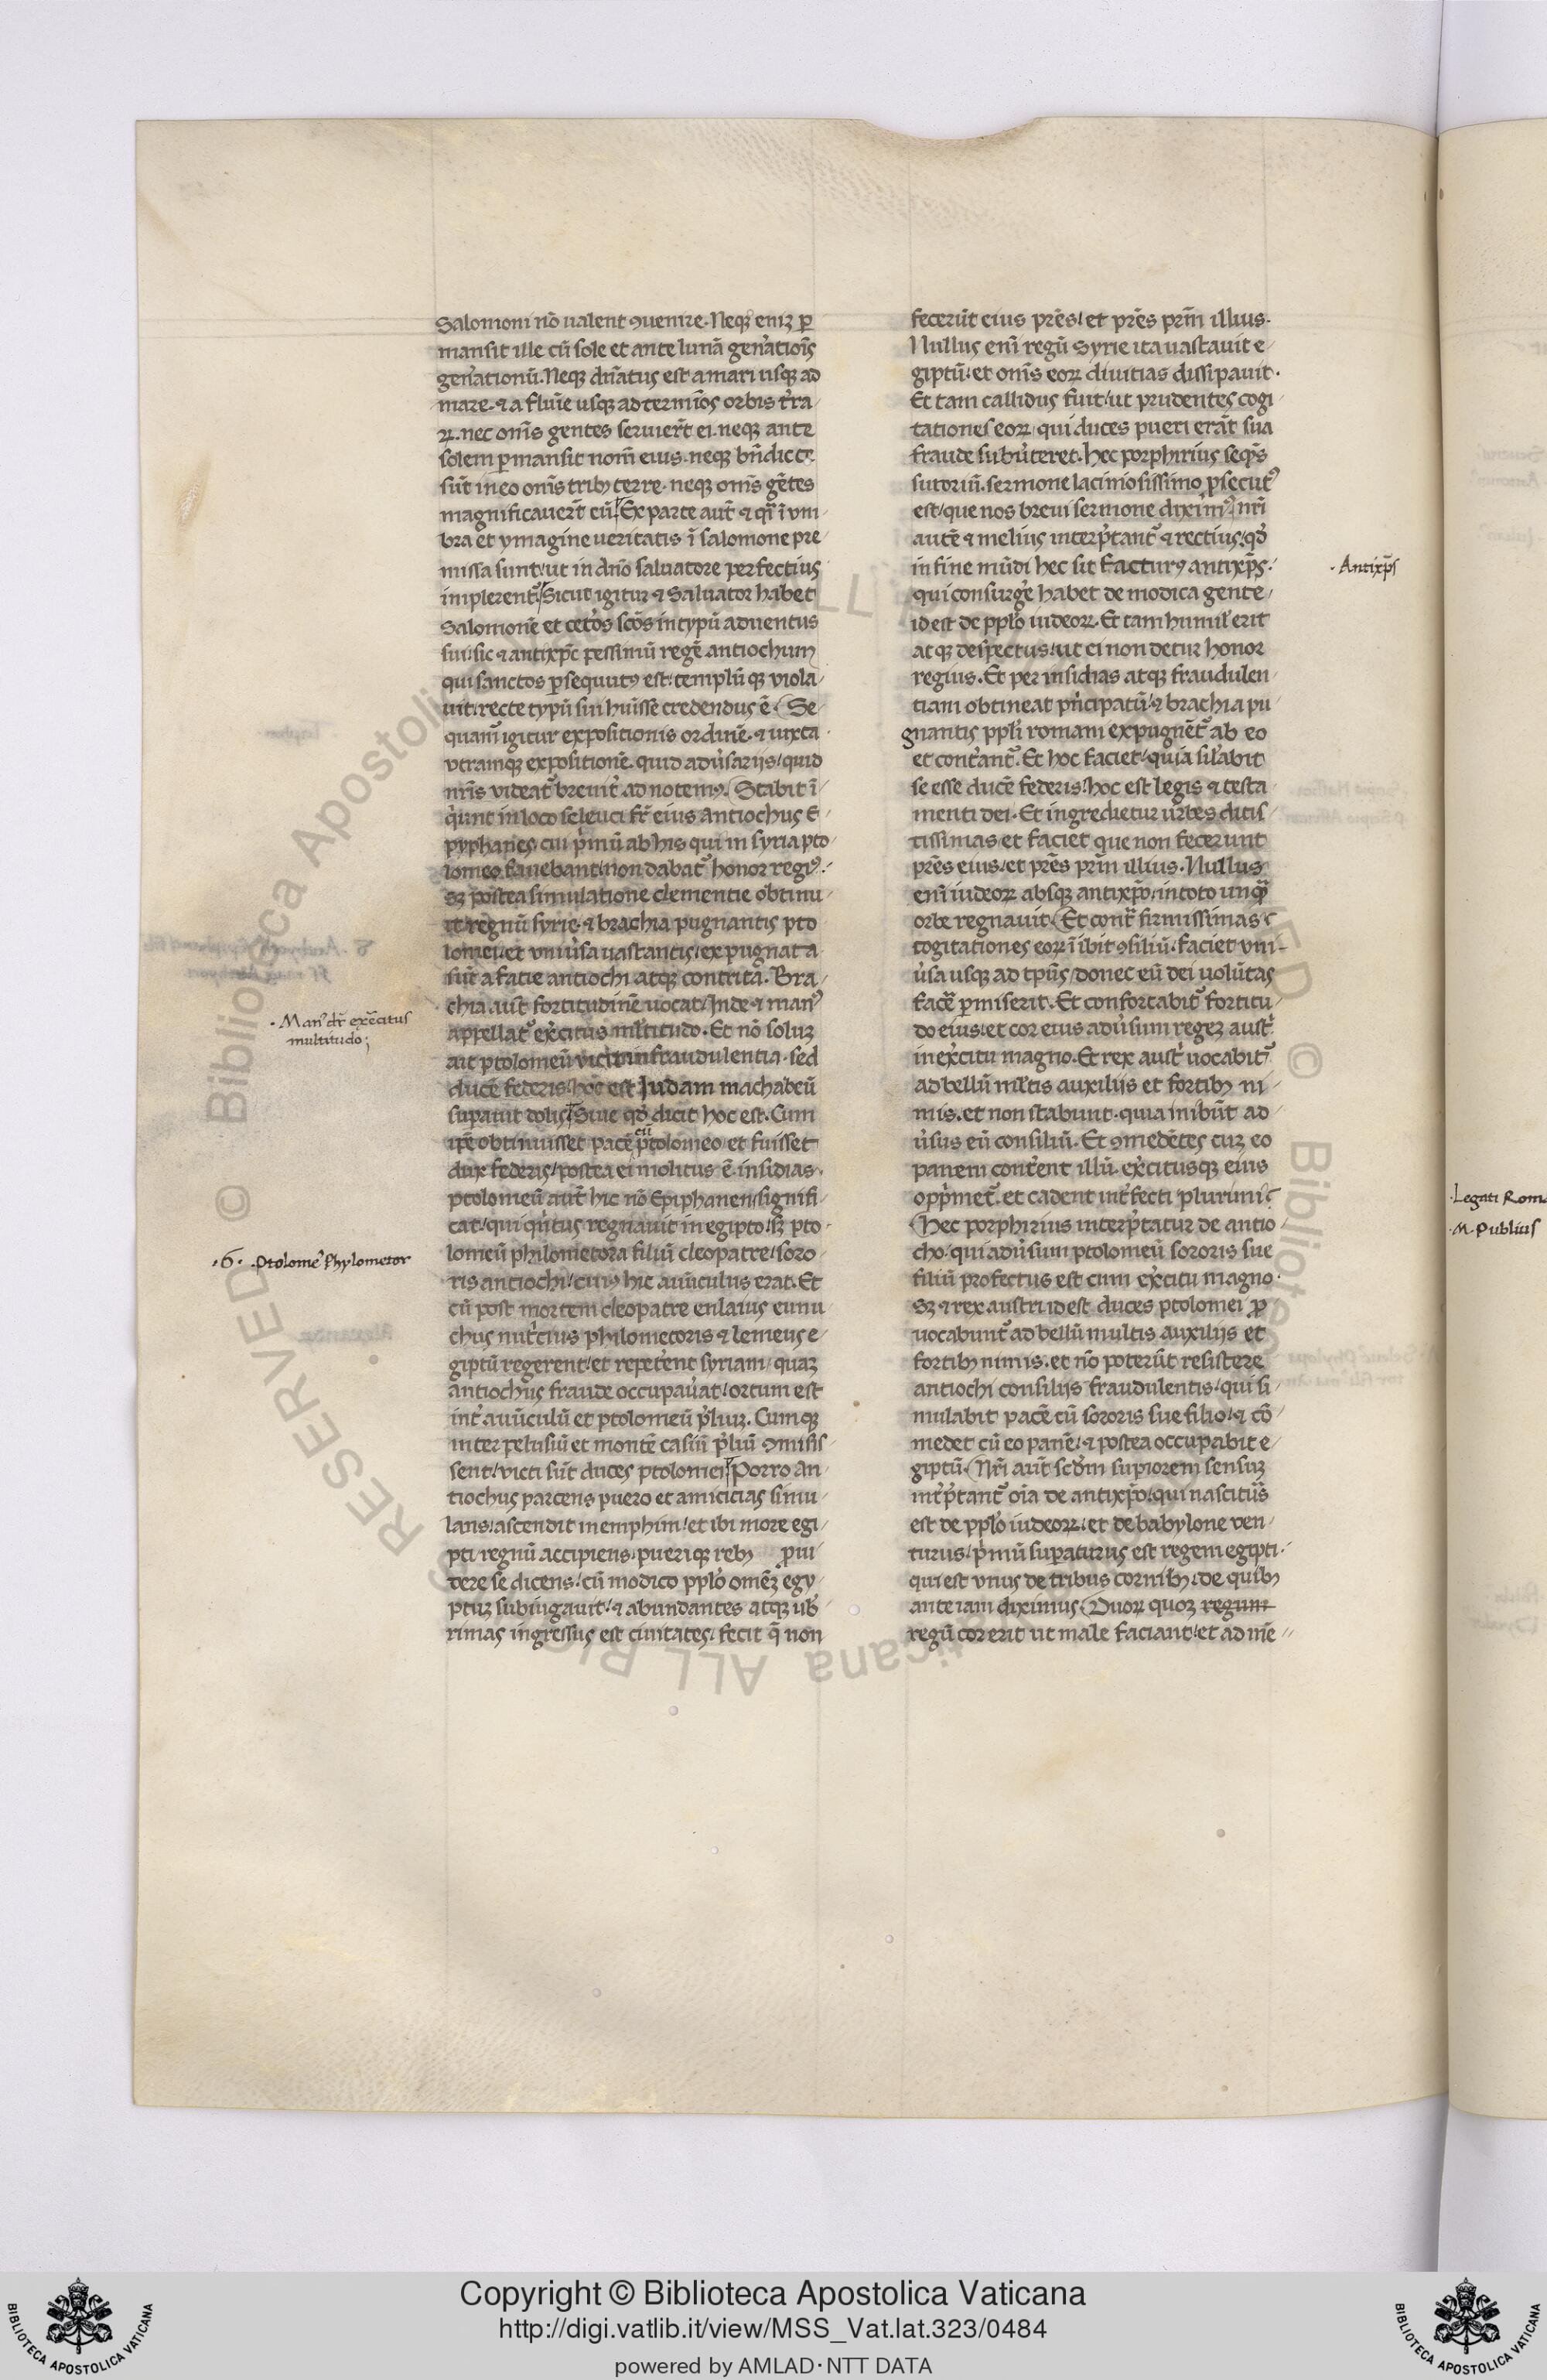 Salomoni nō ualent ꝯuenire. Neqꝫ eniꝫ ꝑ
mansit ille cū sole et ante lunā gen̄ationīs
gen̄ationū. Neqꝫ dn̄atus est a mari usqꝫ ad
mare. ⁊ a flumīe usqꝫ ad termīos orbis t̄ra
ꝝ. nec om̄s gentes seruier̄t ei. neqꝫ ante
solem ꝑmansit nom̄ eius. neqꝫ bn̄dicte
sūt in eo om̄s tribꝫ terre. neqꝫ om̄s gētes
magnificauer̄t eū. Ex parte aut̄ ⁊ qr̄ ī vm
bra et ymagine ueritatis ī salomone pre
missa sunt/ ut in dn̄o saluatore perfectius
implerent᷑ Sicut igitur ⁊ Saluator habet
Salomonē et cet̄os sc̄os in typū aduentus
sui/ sic ⁊ antixp̄c pessimū regē antiochum
qui sanctos ꝑsequutꝰ est/ templū qꝫ viola
uit. recte typū sui huīsse credendus ē. Se
quam᷑ igitur expositionis ordinē. ⁊ iuxta
vtramqꝫ expositionē. quid adūsarijs/ quid
nr̄is videat᷑ breuit̄ adnotemꝰ. Stabit ī
q̇unt in loco seleuci fr̄ eius Antiochus E
pyphanes cui p̄mū ab his qui in syria pto
lomeo fauebant/ non dabat᷑ honor regiꝰ.
sꝫ postea simulatione clementie obtinu
it regnū syrie. ⁊ brachia pugnantis pto
lomei. et vniūsa uastantis/ expugnata
sūt a facie antiochi atqꝫ contrita. Bra
chia aut̄ fortitudinē uocat/ Inde ⁊ manꝰ
appellat᷑ ex̄citus ml̄titudo. Et nō soluꝫ
ait ptolomeū vicit in fraudulentia. sed
ducē federis/ hoc est Judam machabeū
suꝑauit dolis/ Siue qđ dicit hoc est. Cum
ip̄e obtinuisset pacē cū ptolomeo/ et fuisset
dux federis/ postea ei molitus ē insidias.
ptolomeū aut̄ hic nō Epiphanen/ signifi
cat/ qui qn̄tus regnauit in egipto/ sꝫ pto
lomeū philometora filiū cleopatre/ soro
ris antiochi/ cuiꝰ hic auūculus erat. Et
cū post mortem cleopatre enlaius eunu
chus nut̄cius philometoris ⁊ lemeus e
giptū regerent/ et repet̄ent syriam/ quaꝫ
antiochus fraude occupau̇at/ ortum est
int̄ auūculū et ptolomeū p̄liuꝫ. Cumqꝫ
inter pelusiū et montē casiū p̄liū ꝯmisis
sent/ victi sūt duces ptolomei. Porro an
tiochus parcens puero et amicicias simu
lans/ ascendit memphim/ et ibi more egi
pti regnū accipiens. puerique rebꝫ ꝓui
dere se dicens/ cū modico pplo omēꝫ egy
ptuꝫ subiugauit/ ⁊ abundantes atqꝫ ub̄
rimas ingressus est ciuitates. fecit q̄ non
fecerūt eius pr̄es/ et pr̄es pr̄m illius.
Nullus enī regū Syrie ita uastauit e
giptū/ et om̄s eoꝝ diuitias dissipauit.
Et tam callidus fuit/ ut prudentes cogi
tationes eoꝝ/ qui duces pueri erāt sua
fraude subūteret. Hec porphirius seqn̄s
sutoriū. sermone laciniosissimo ꝓsecutꝰ
est/ que nos breui sermone diximꝰ/ nr̄i
autē ⁊ melius interp̄tant᷑ ⁊ rectius/ qđ
in fine mūdi hec sit facturꝰ antixp̄s.
qui consurgē habet de modica gente/
id est de pplo iudeoꝝ. Et tam humil̄ erit
atqꝫ despectus/ ut ei non detur honor
regius. Et per insidias atqꝫ fraudulen
tiam obtineat pn̄cipatū/ ⁊ brachia pu
gnantis ppli romani expugnēt᷑ ab eo
et conterant᷑. Et hoc faciet/ quia sil̄abit
se esse ducē federis/ hoc est legis ⁊ testa
menti dei. Et ingredietur urbes ditis
tissimas et faciet que non fecerunt
pr̄es eius/ et pr̄es pr̄m illius. Nullus
enī iudeoꝝ absqꝫ antixp̄o/ in toto unqꝫ̄
orbe regnauit. Et cont̄ firmissimas
cogitationes eoꝝ ī ibit ꝯsiliū. faciet vni
ūsa usqꝫ ad tp̄us/ donec eū dei uolūtas
facē ꝑmiserit. Et confortabit᷑ fortitu
do eius/ et cor eius adūsum regeꝫ aust̄
in ex̄citu magno. Et rex aust̄ uocabit᷑
ad bellū ml̄tis auxilijs et fortibꝫ ni
mis. et non stabunt. quia inibūt ad
ūsus eū consiliū. Et ꝯmedētes cuꝫ eo
panem conteent illū. ex̄citusqꝫ eius
opp̄met᷑. et cadent int̄fecti plurimi
Hec porphirius interp̄tatur de antio
cho. qui adūsum ptolomeū sororis sue
filiū profectus est cum ex̄citu magno.
Sꝫ ⁊ rex austri id est duces ptolomei ꝓ
uocabunt᷑ ad bellū multis auxilijs et
fortibꝫ nimis. et nō poterūt resistere
antiochi consilijs fraudulentis/ qui si
mulabit pacē cū sororis sue filio/ ⁊ cō
medet cū eo panē/ ⁊ postea occupabit e
giptū. Nr̄i aut̄ scđm supiorem sensuꝫ
int̄p̄tant᷑ oīa de antixp̄o/ qui nascitūs
est de pplo iudeoꝝ/ et de babylone ven
turus/ p̄mū suꝑaturus est regem egipti.
qui est vnus de tribus cornibꝫ/ de quibꝫ
ante iam diximus. Duoꝝ quoꝫ regum
regū cor erit ut male faciant/ et ad mē
. Manꝰ dr̄ exēcitus
multitudo;
.6. .Ptolomeꝰ Phylometor
. Antixp̄s
.Legati Rom
.M. Publius
Copyright © Biblioteca Apostolica Vaticana
http://digi.vatlib.it/view/MSS_Vat.lat.323/0484
powered by AMLAD·NTT DATA
BIBLIOTECA APOSTOLICA VATICANA
BIBLIOTECA APOSTOLICA VATICANA